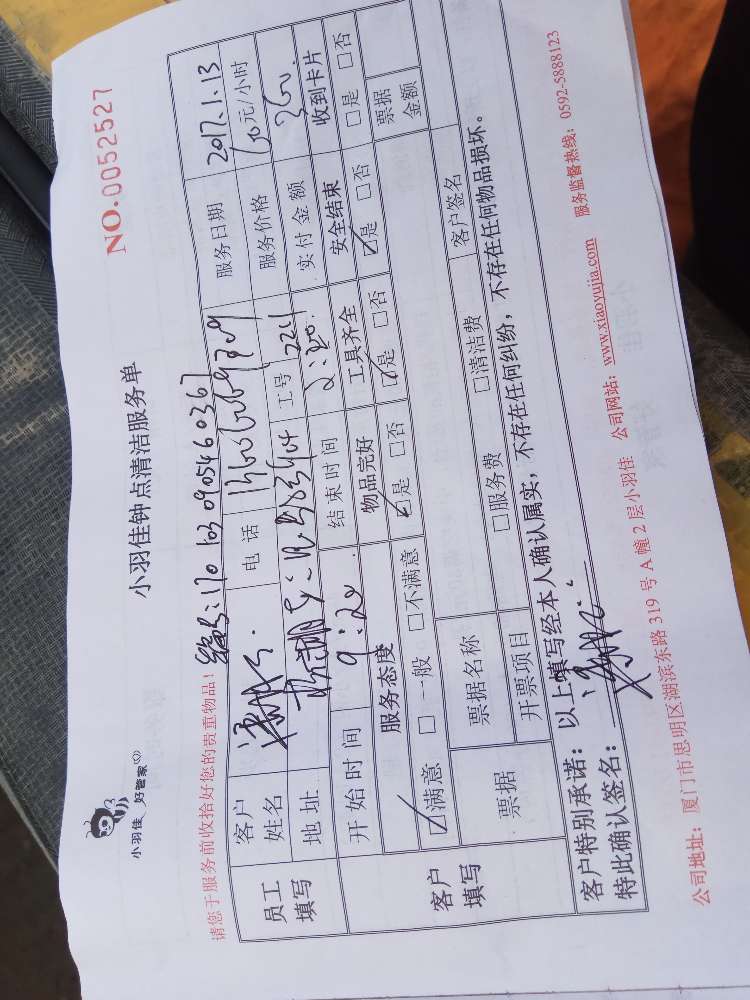 小羽佳 好管家
小羽佳钟点清洁服务单
NO.0052527
请您于服务前收拾好您的贵重物品!
编号:170103090546036
员工填写
客户姓名
电话
服务日期 2017.1.13
地址
工号 221
服务价格 60元/小时
客户填写
开始时间 9:20
结束时间 2:20
实付金额 360
服务态度
物品完好
工具齐全
安全结束
收到卡片
☑满意 □一般 □不满意
☑是 □否
☑是 □否
☑是 □否
□是 □否
票据
票据名称
□服务费 □清洁费
客户签名
票据金额
开票项目
客户特别承诺:以上填写经本人确认属实,不存在任何纠纷,不存在任何物品损坏。
特此确认签名:
公司地址:厦门市思明区湖滨东路 319 号 A 幢 2 层小羽佳 公司网站:www.xiaoyujia.com 服务监督热线:0592-5888123